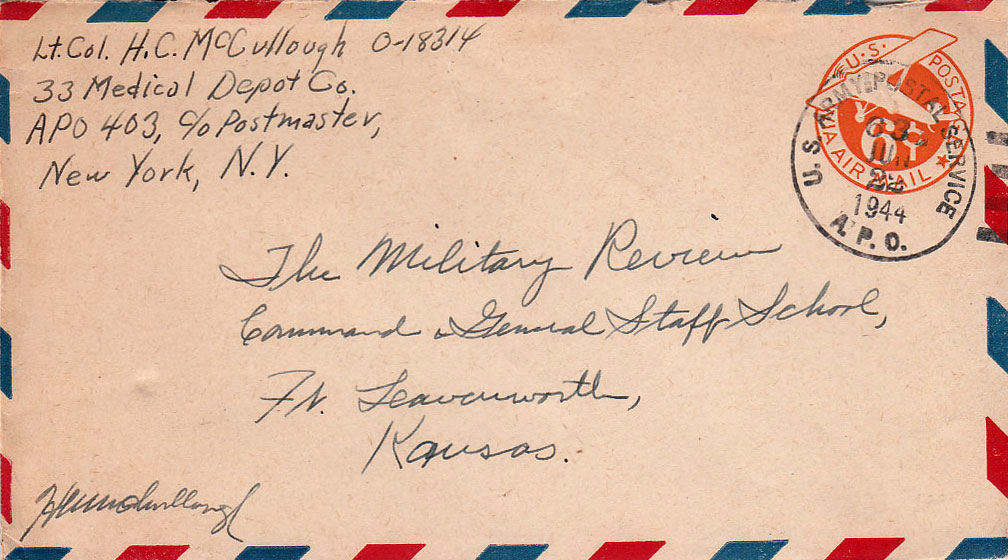 Lt. Col. H. C. McCullough O-18314
33 Medical Depot Co.
APO 403, c/o Postmaster,
New York, N.Y.
U.S. POSTAGE
VIA AIR MAIL
U.S. ARMY POSTAL SERVICE
JUN
22
1944
A.P.O.
The Military Review
Command & General Staff School,
Ft. Leavenworth,
Kansas.
HCMcCullough